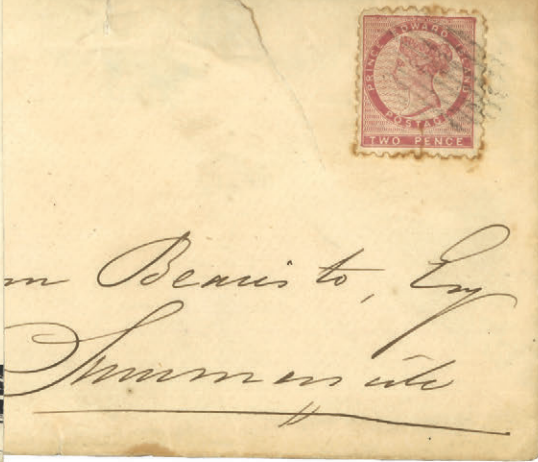 PRINCE EDWARD ISLAND
POSTAGE
TWO PENCE
m Beairsto, Esq
Summerside